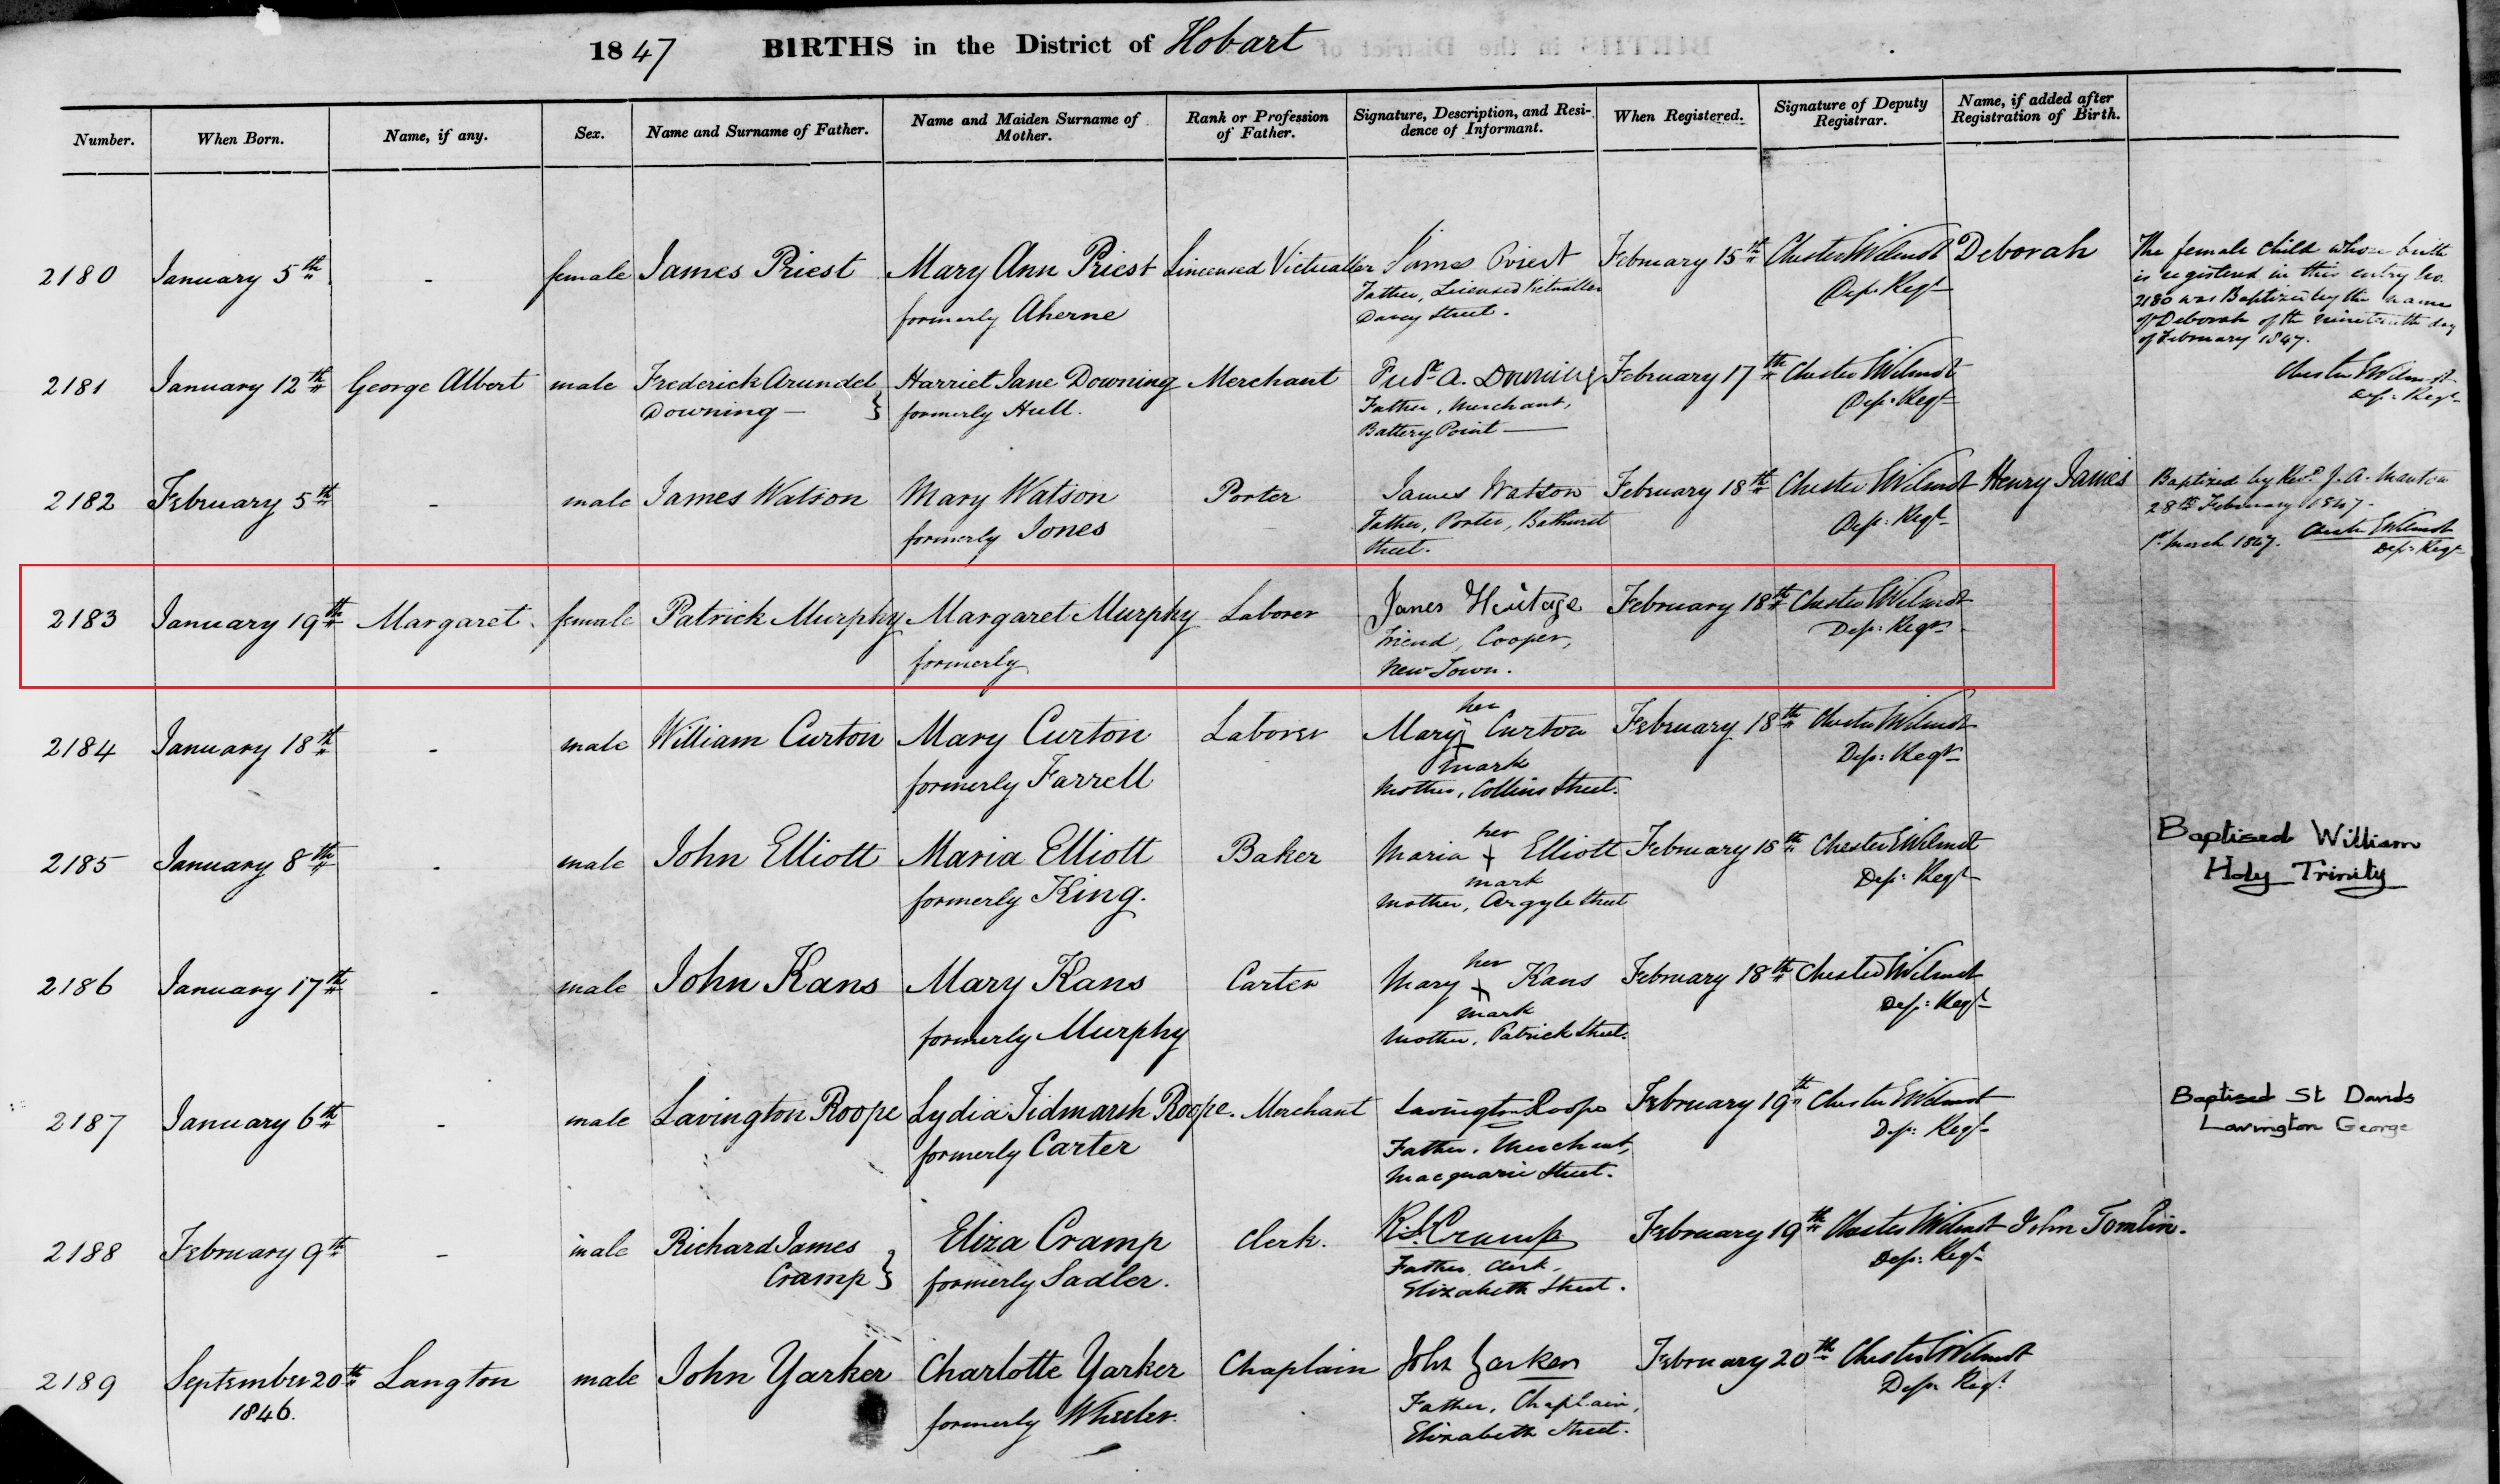 1847 BIRTHS in the District of Hobart
Number. When Born. Name, if any. Sex. Name and Surname of Father. Name and Maiden Surname of Mother. Rank or Profession of Father. Signature, Description, and Residence of Informant. When Registered. Signature of Deputy Registrar. Name, if added after Registration of Birth.
2180 January 5th - female James Priest Mary Ann Priest Lincensed Victualler James Priest February 15th Chester Wilmot Deborah The female child whose birth
formerly Aherne Father, Licensed Victualler Dep: Regr is registered in this entry No.
Davey Street. 2180 was Baptized by the name
of Deborah of th nineteenth day
of February 1847.
Chester Wilmot
Dep: Regr
2181 January 12th George Albert male Frederick Arundel Harriet Jane Downing Merchant Fredk A. Downing February 17th Chester Wilmot
Downing - } formerly Hull. Father, Merchant, Dep: Regr
Battery Point
2182 February 5th - male James Watson Mary Watson Porter James Watson February 18th Chester Wilmot Henry James Baptized by Revd J. A. Manton
formerly Jones Father, Porter, Bathurst Dep: Regr 28th February 1847.
Street. 1st March 1847. Chester Wilmot
Dep: Regr
2183 January 19th Margaret female Patrick Murphy Margaret Murphy Laborer James Heritage February 18th Chester Wilmot
formerly friend, Cooper, Dep: Regr
New Town.
2184 January 18th - male William Curton Mary Curton Laborer Mary her Curton February 18th Chester Wilmot
formerly Farrell mark Dep: Regr
Mother, Collins Street.
2185 January 8th - male John Elliott Maria Elliott Baker Maria her x Elliott February 18th Chester Wilmot Baptised William
formerly King. mark Dep: Regr Holy Trinity
Mother, Argyle Street
2186 January 17th - male John Kans Mary Kans Carter Mary her x Kans February 18th Chester Wilmot
formerly Murphy mark Dep: Regr
Mother, Patrick Street.
2187 January 6th - male Lavington Roope Lydia Tidmarsh Roope. Merchant Lavington Roope February 19th Chester Wilmot Baptised St Davids
formerly Carter Father, Merchant, Dep: Regr Lavington George
Macquarie Street.
2188 February 9th - male Richard James Eliza Cramp Clerk. R. J. Cramp February 19th Chester Wilmot John Tomlin.
Cramp } formerly Sadler. Father, Clerk, Dep: Regr
Elizabeth Street.
2189 September 20th Langton male John Yarker Charlotte Yarker Chaplain John Yarker February 20th Chester Wilmot
1846. formerly Wheeler. Father, Chaplain, Dep: Regr
Elizabeth Street.